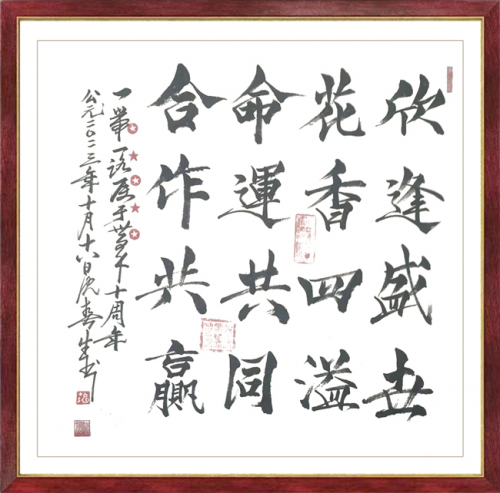 欣逢盛世
花香四溢
命運共同
合作共赢
一带一路于十周年
公元二〇二三年十月十八日生书